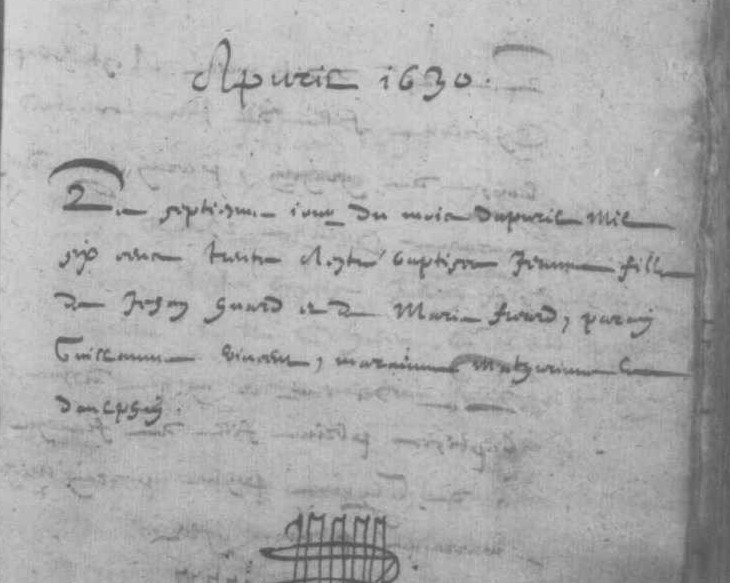 Apuril 1630.
Le septiesme iour du mois dapuril Mil
six cens trente A este baptisee Jeanne fille
de Jehan Huard et de Marie , parain
Guillaume Vincent, maraine Mathurine
daulphin.